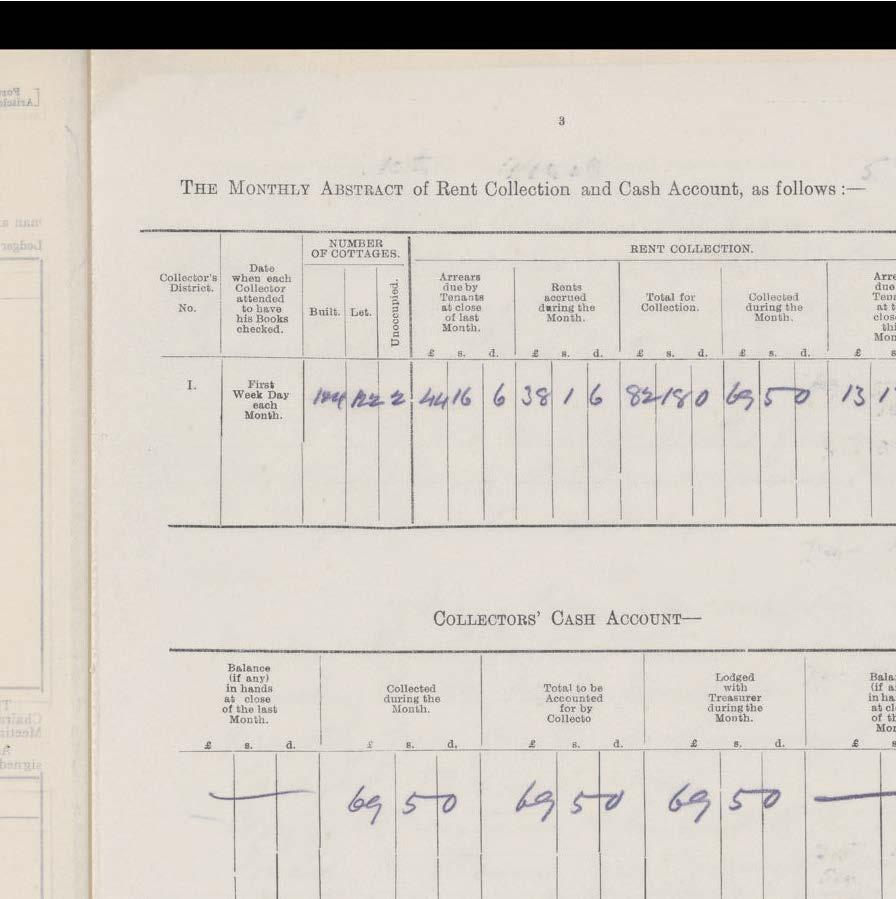 3
THE MONTHLY ABSTRACT of Rent Collection and Cash Account, as follows :—
Collector's District. No.
Date when each Collector attended to have his Books checked.
NUMBER OF COTTAGES.
Built. Let. Unoccupied.
RENT COLLECTION.
Arrears due by Tenants at close of last Month.
Rents accrued during the Month.
Total for Collection.
Collected during the Month.
£ s. d. £ s. d. £ s. d. £ s. d. £
I. First Week Day each Month. 124 122 2 44 16 6 38 1 6 82 18 0 69 5 0 13
COLLECTORS' CASH ACCOUNT—
Balance (if any) in hands at close of the last Month.
Collected during the Month.
Total to be Accounted for by Collecto
Lodged with Treasurer during the Month.
£ s. d. £ s. d. £ s. d. £ s. d. £
— 69 5 0 69 5 0 69 5 0 —